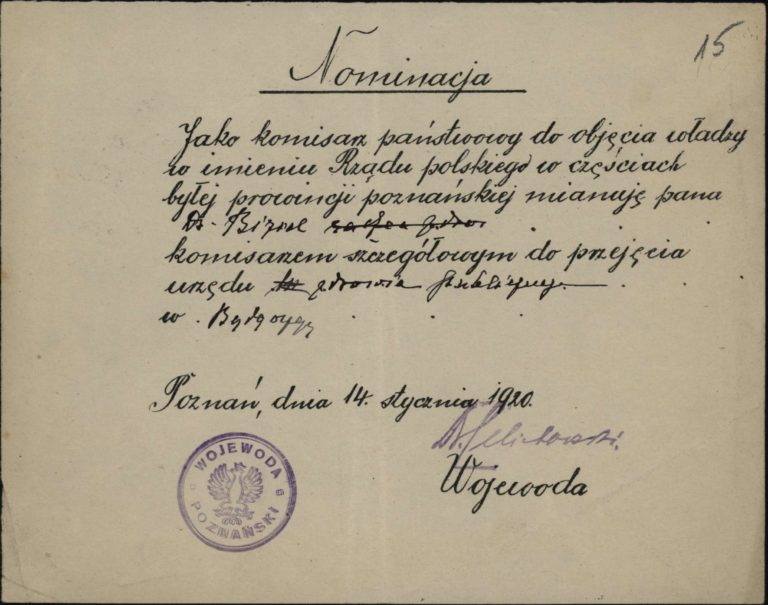 15
Nominacja
Jako komisarz państwowy do objęcia władzy
w imieniu Rządu polskiego w częściach
byłej prowincji poznańskiej mianuję pana
Dr. Biziel
komisarzem szczegółowym do przejęcia
urzędu zdrowia publicznego
w. Bydgoszczy
Poznań, dnia 14. stycznia 1920.
Dr. Celichowski.
Wojewoda
WOJEWODA
POZNAŃSKI